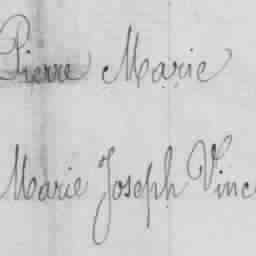 Pierre Marie
Marie Joseph Vinc